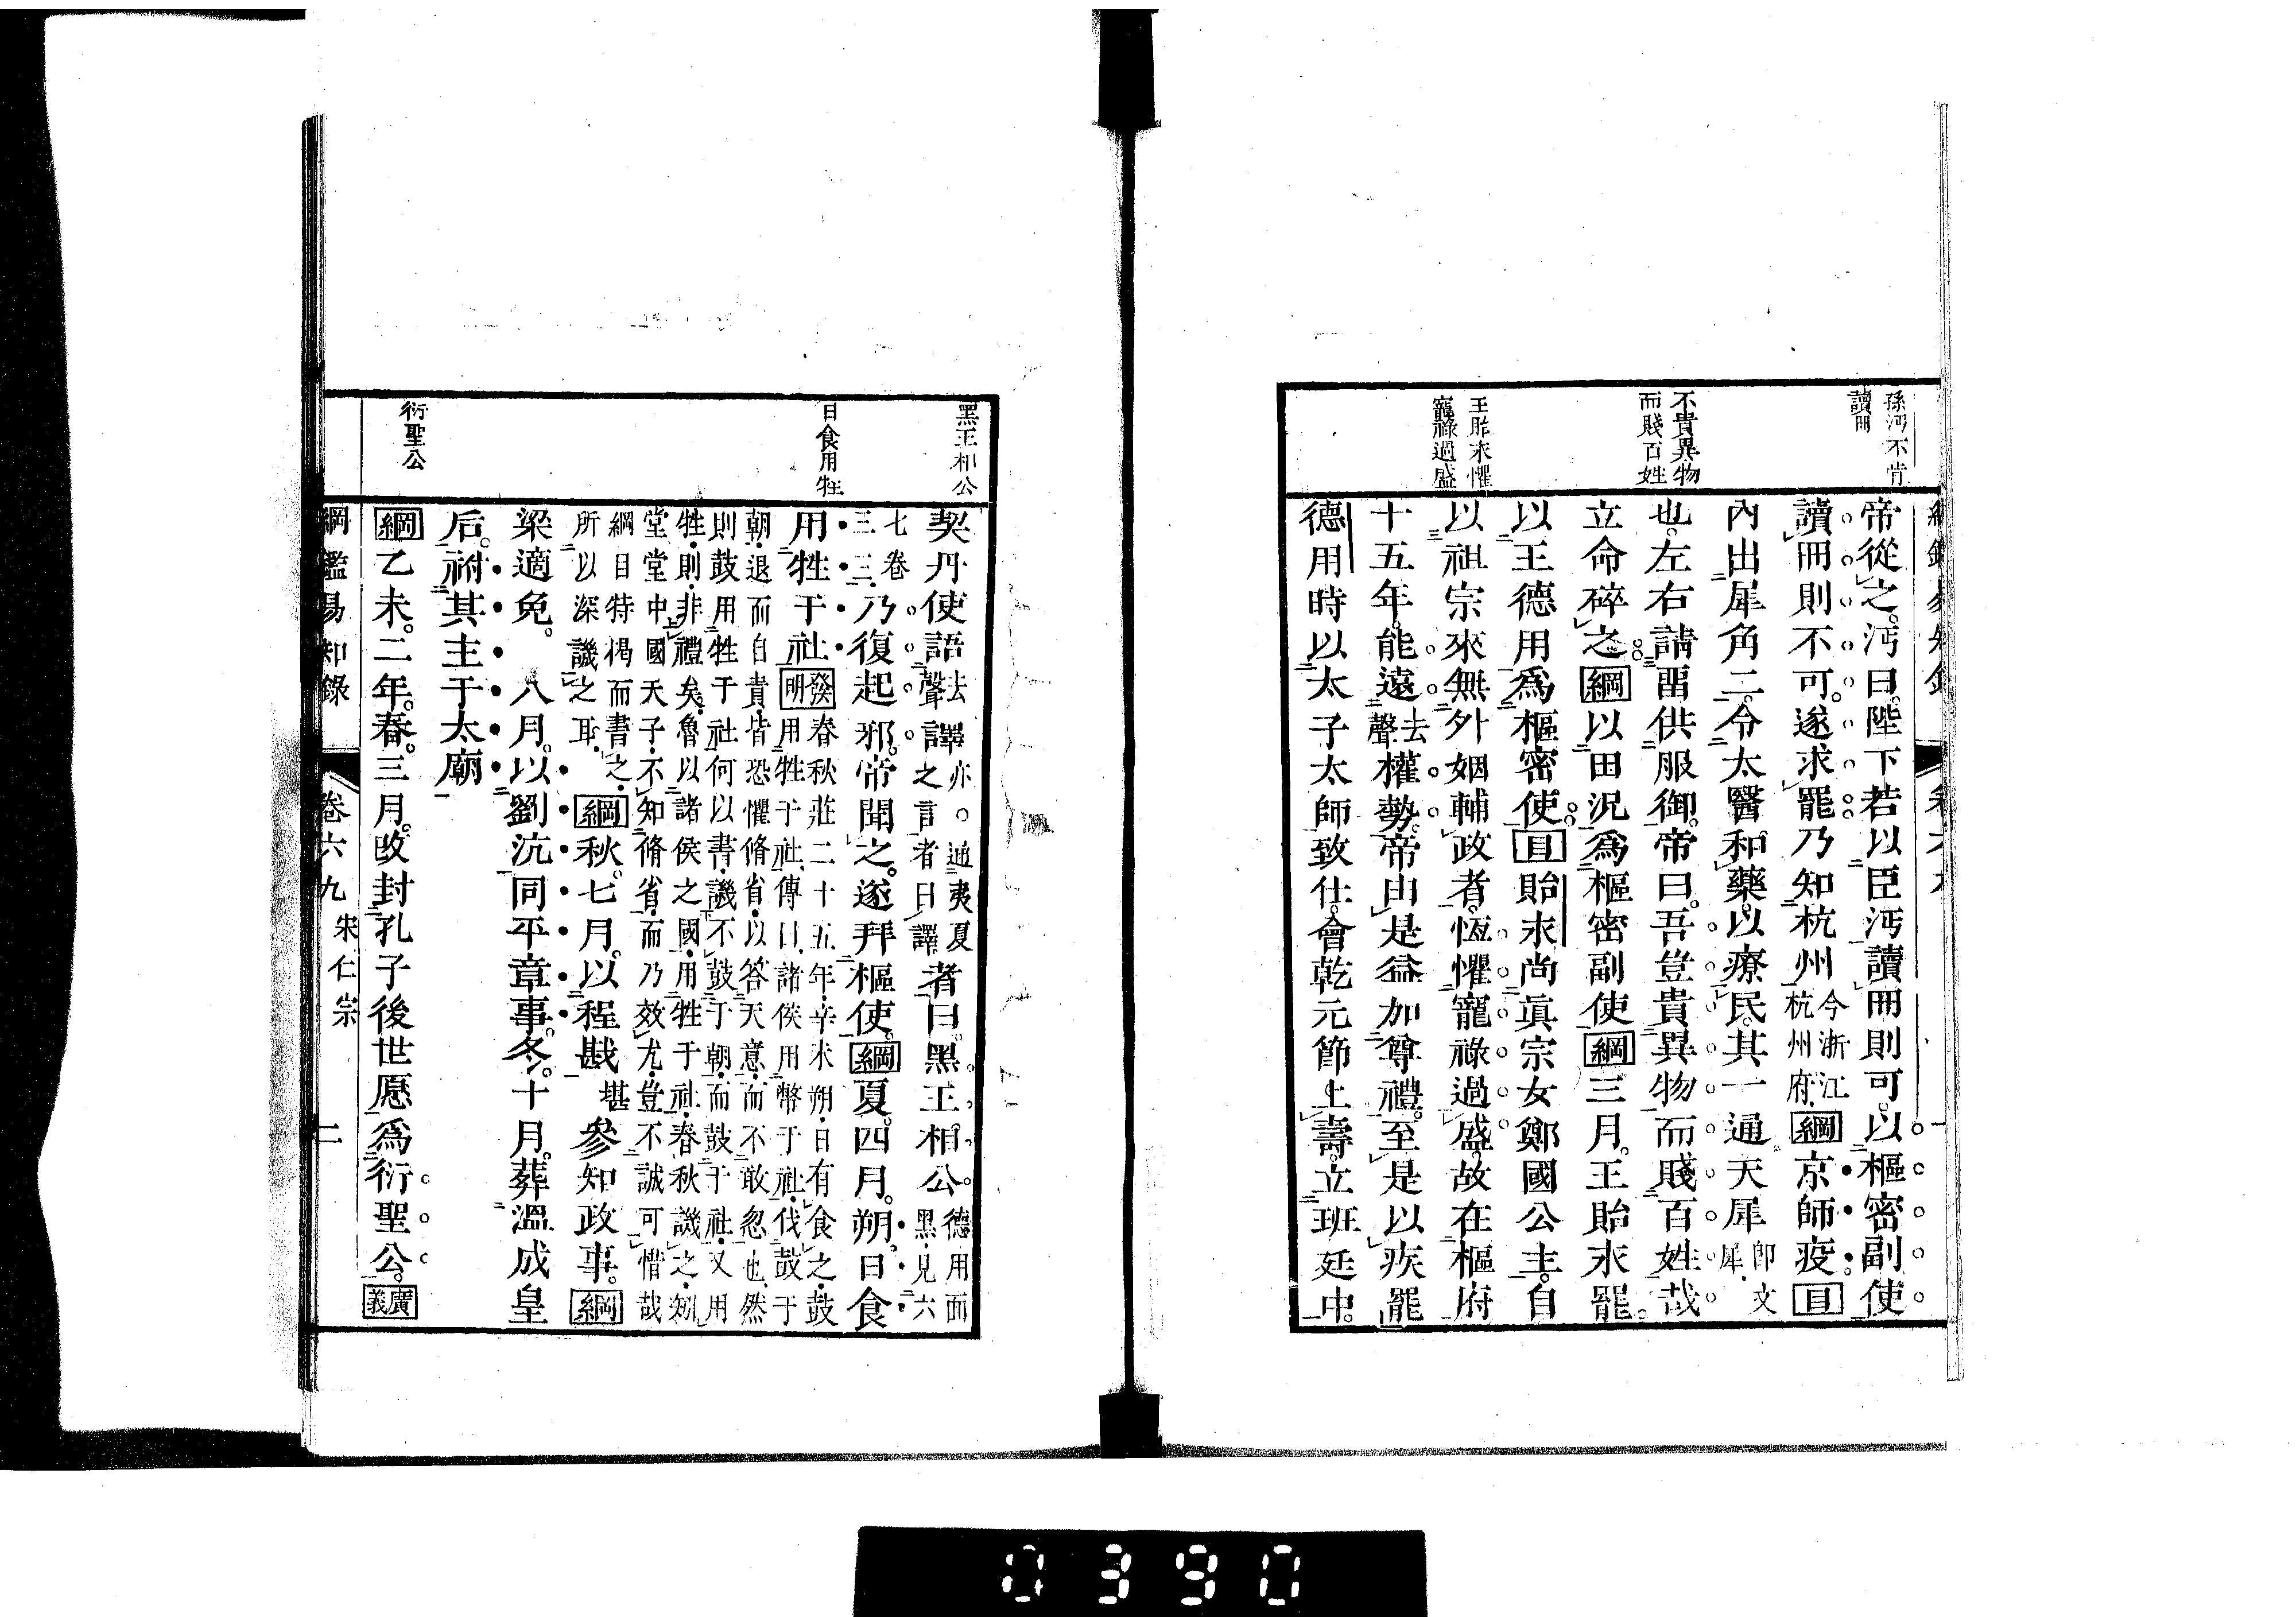 孫沔不肯
讀冊
不貴異物
而賤百姓
王貽永懼
寵祿過盛
帝從之沔曰陛下若以臣沔讀冊則可以樞密副使
讀冊則不可遂求罷乃知杭州今浙江杭州府綱京師疫目
內出犀角二令太醫和藥以療民其一通天犀即文犀
也左右請畱供服御帝曰吾豈貴異物而賤百姓哉
立命碎之綱以田況爲樞密副使綱三月王貽永罷
以王德用爲樞密使目貽永尚眞宗女鄭國公主自
以祖宗來無外姻輔政者恆懼寵祿過盛故在樞府
十五年能遠去聲權勢帝由是益加尊禮至是以疾罷
德用時以太子太師致仕會乾元節上壽立班廷中
黑王相公
日食用牲
衍聖公
契丹使語去聲譯亦。通夷夏之言者曰譯者曰黑王相公德用而黑見六
七卷三三乃復起邪帝聞之遂拜樞使綱夏四月朔日食
用牲于社發明春秋莊二十五年辛未朔日有食之鼓用牲于社傳曰諸侯用幣于社伐鼓于
朝退而自責皆恐懼脩省以答天意而不敢忽也然
則鼓用牲于社何以書譏不鼓于朝而鼓于社又用
牲則非禮矣魯以諸侯之國用牲于社春秋譏之矧
堂堂中國天子不知脩省而乃效尤豈不誠可惜哉
綱目特揭而書之
所以深譏之耳綱秋七月以程戡堪參知政事綱
梁適免八月以劉沆同平章事冬十月葬溫成皇
后祔其主于太廟
綱乙未二年春三月改封孔子後世愿爲衍聖公廣義
綱鑑易知錄
卷六九
宋仁宗
二
0390